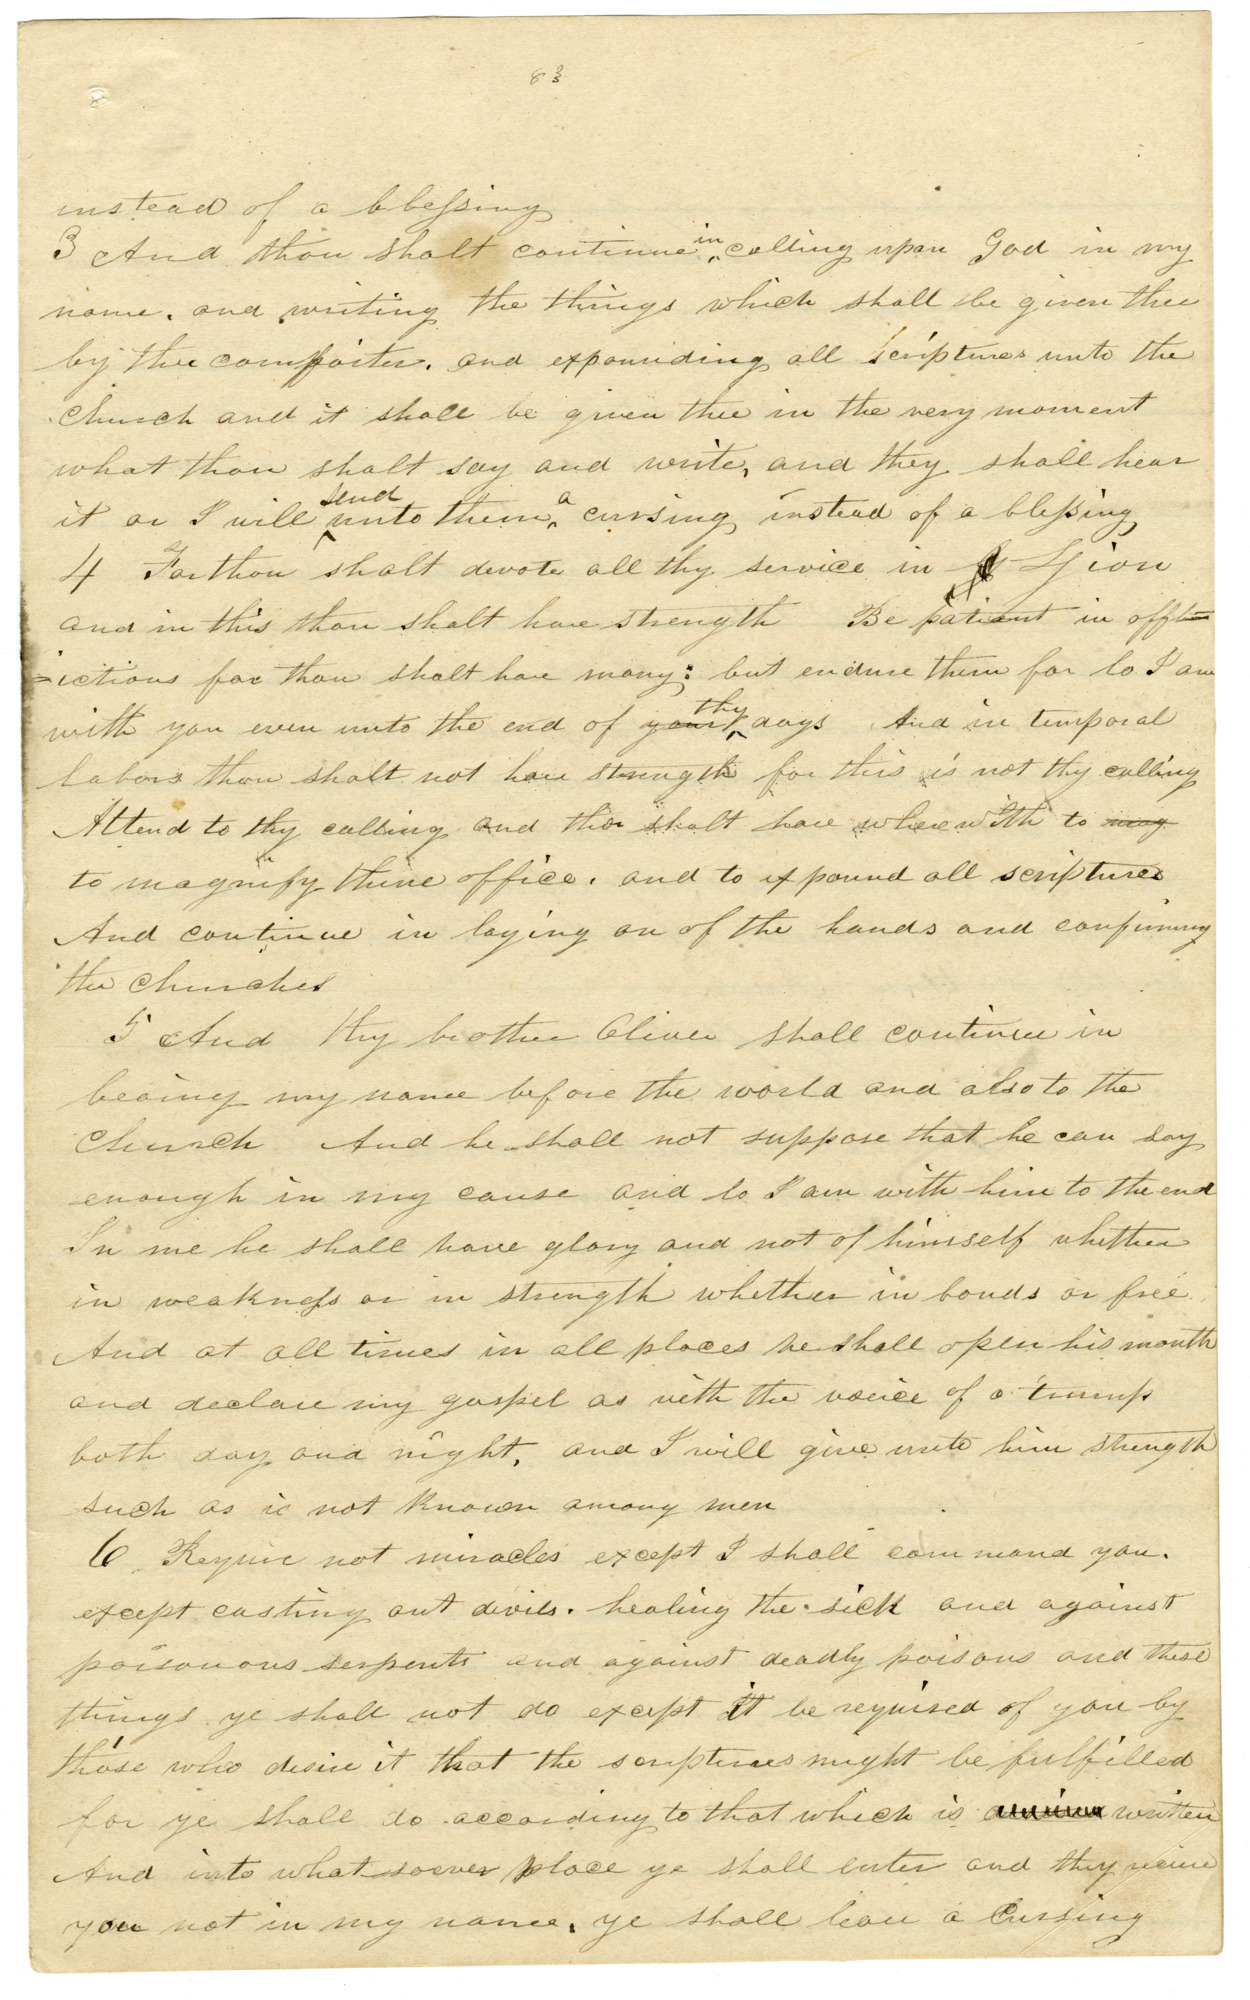 83
instead of a blessing
3 And thou shalt continue in calling upon God in my
name. and writing the things which shall be given thee
by the comforter. and expounding all scriptures unto the
church and it shall be given thee in the very moment
what thou shalt say and write, and they shall hear
it or I will send unto them a cursing instead of a blessing
4 For thou shalt devote all thy service in Zion
and in this thou shalt have strength Be patient in affl=
=ictions for thou shalt have many: but endure them for lo I am
with you even unto the end of your thy days And in temporal
labors thou shalt not have strength for this is not thy calling
Attend to thy calling and thou shalt have wherewith to may
to magnify thine office. and to expound all scriptures
And continue in laying on of the hands and confirming
the churches
5 And thy brother Oliver shall continue in
bearing my name before the world and also to the
church And he shall not suppose that he can say
enough in my cause and lo I am with him to the end
In me he shall have glory and not of himself whether
in weakness or in strength whether in bonds or free
And at all times in all places he shall open his mouth
and declare my gospel as with the voice of a trump
both day and night, and I will give unto him strength
such as is not known among men
6 Require not miracles except I shall command you.
except casting out devils. healing the sick and against
poisonous serpents and against deadly poisons and these
things ye shall not do except it be required of you by
those who desire it that the scriptures might be fulfilled
for ye shall do according to that which is written
And into what soever place ye shall enter and they receive
you not in my name, ye shall leave a cursing